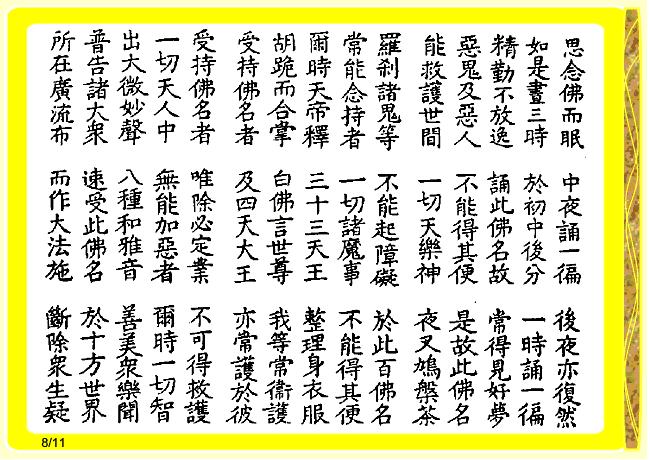 思念佛而眠 中夜誦一徧 後夜亦復然
如是晝三時 於初中後分 一時誦一徧
精勤不放逸 誦此佛名故 常得見好夢
惡鬼及惡人 不能得其便 是故此佛名
能救護世間 一切天樂神 夜叉鳩槃茶
羅剎諸鬼等 不能起障礙 於此百佛名
常能念持者 一切諸魔事 不能得其便
爾時天帝釋 三十三天王 整理身衣服
胡跪而合掌 白佛言世尊 我等常衞護
受持佛名者 及四天大王 亦常護於彼
受持佛名者 唯除必定業 不可得救護
一切天人中 無能加惡者 爾時一切智
出大微妙聲 八種和雅音 善美衆樂聞
普告諸大衆 速受此佛名 於十方世界
所在廣流布 而作大法施 斷除衆生疑
8/11